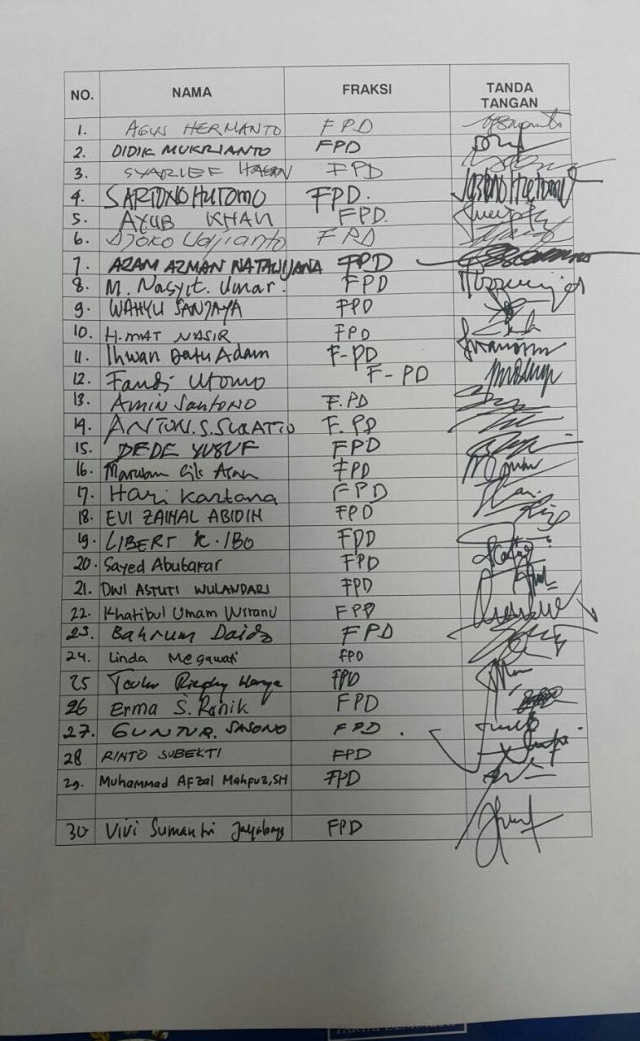 NO. NAMA FRAKSI TANDA TANGAN
1. AGUS HERMANTO FPD
2. DIDIK MUKRIANTO FPD
3. SYARIEF HASAN FPD
4. SARTONO HUTOMO FPD. SARTONO HUTOMO
5. AYUB KHAN FPD
6. Djoko Udjianto FPD
7. AZAM AZMAN NATAWIJANA FPD
8. M. Nasyit Umar. FPD
9. WAHYU SANJAYA FPD
10. H.MAT NASIR FPD
11. Ihwan Datu Adam F-PD
12. Fandi Utomo F-PD
13. Amin Santono F.PD
14. ANTON.S.SURATTO F.PD
15. DEDE YUSUF FPD
16. Marwan FPD
17. Hari Kartana FPD
18. EVI ZAINAL ABIDIN FPD
19. LIBERT K.IBO FPD
20. Sayed Abubakar FPD
21. DWI ASTUTI WULANDARI FPD
22. Khatibul Umam Wiranu FPD
23. Bahrum Daido FPD
24. Linda Megawati FPD
25 FPD
26 Erma S. Ranik FPD
27. GUNTUR. SASONO FPD.
28 RINTO SUBEKTI FPD
29. Muhammad Afzal Mahfuz,SH FPD
30 Vivi Sumantri Jayabaya FPD